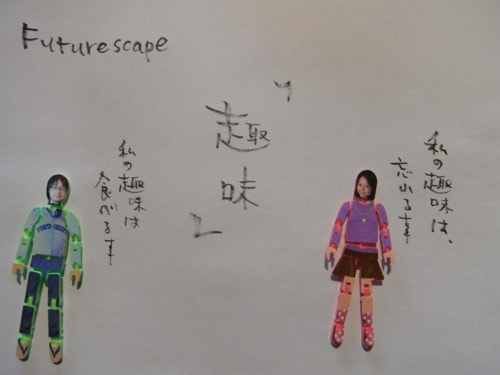 Futurescape
『趣味』
私の趣味は、
忘れる事
私の趣味は
食べる事